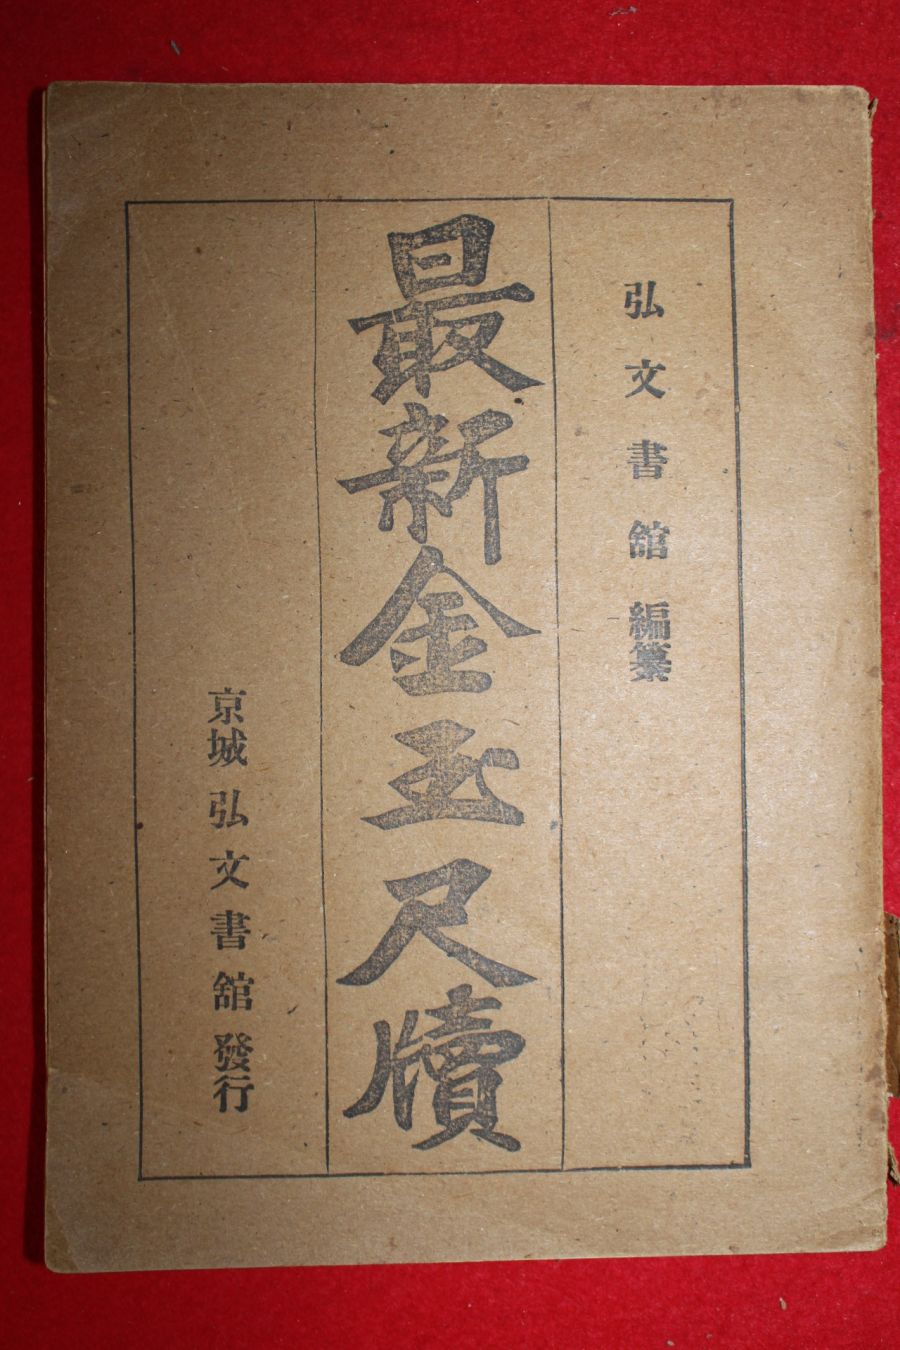 弘文書館編纂
最新金玉尺牘
京城弘文書館發行